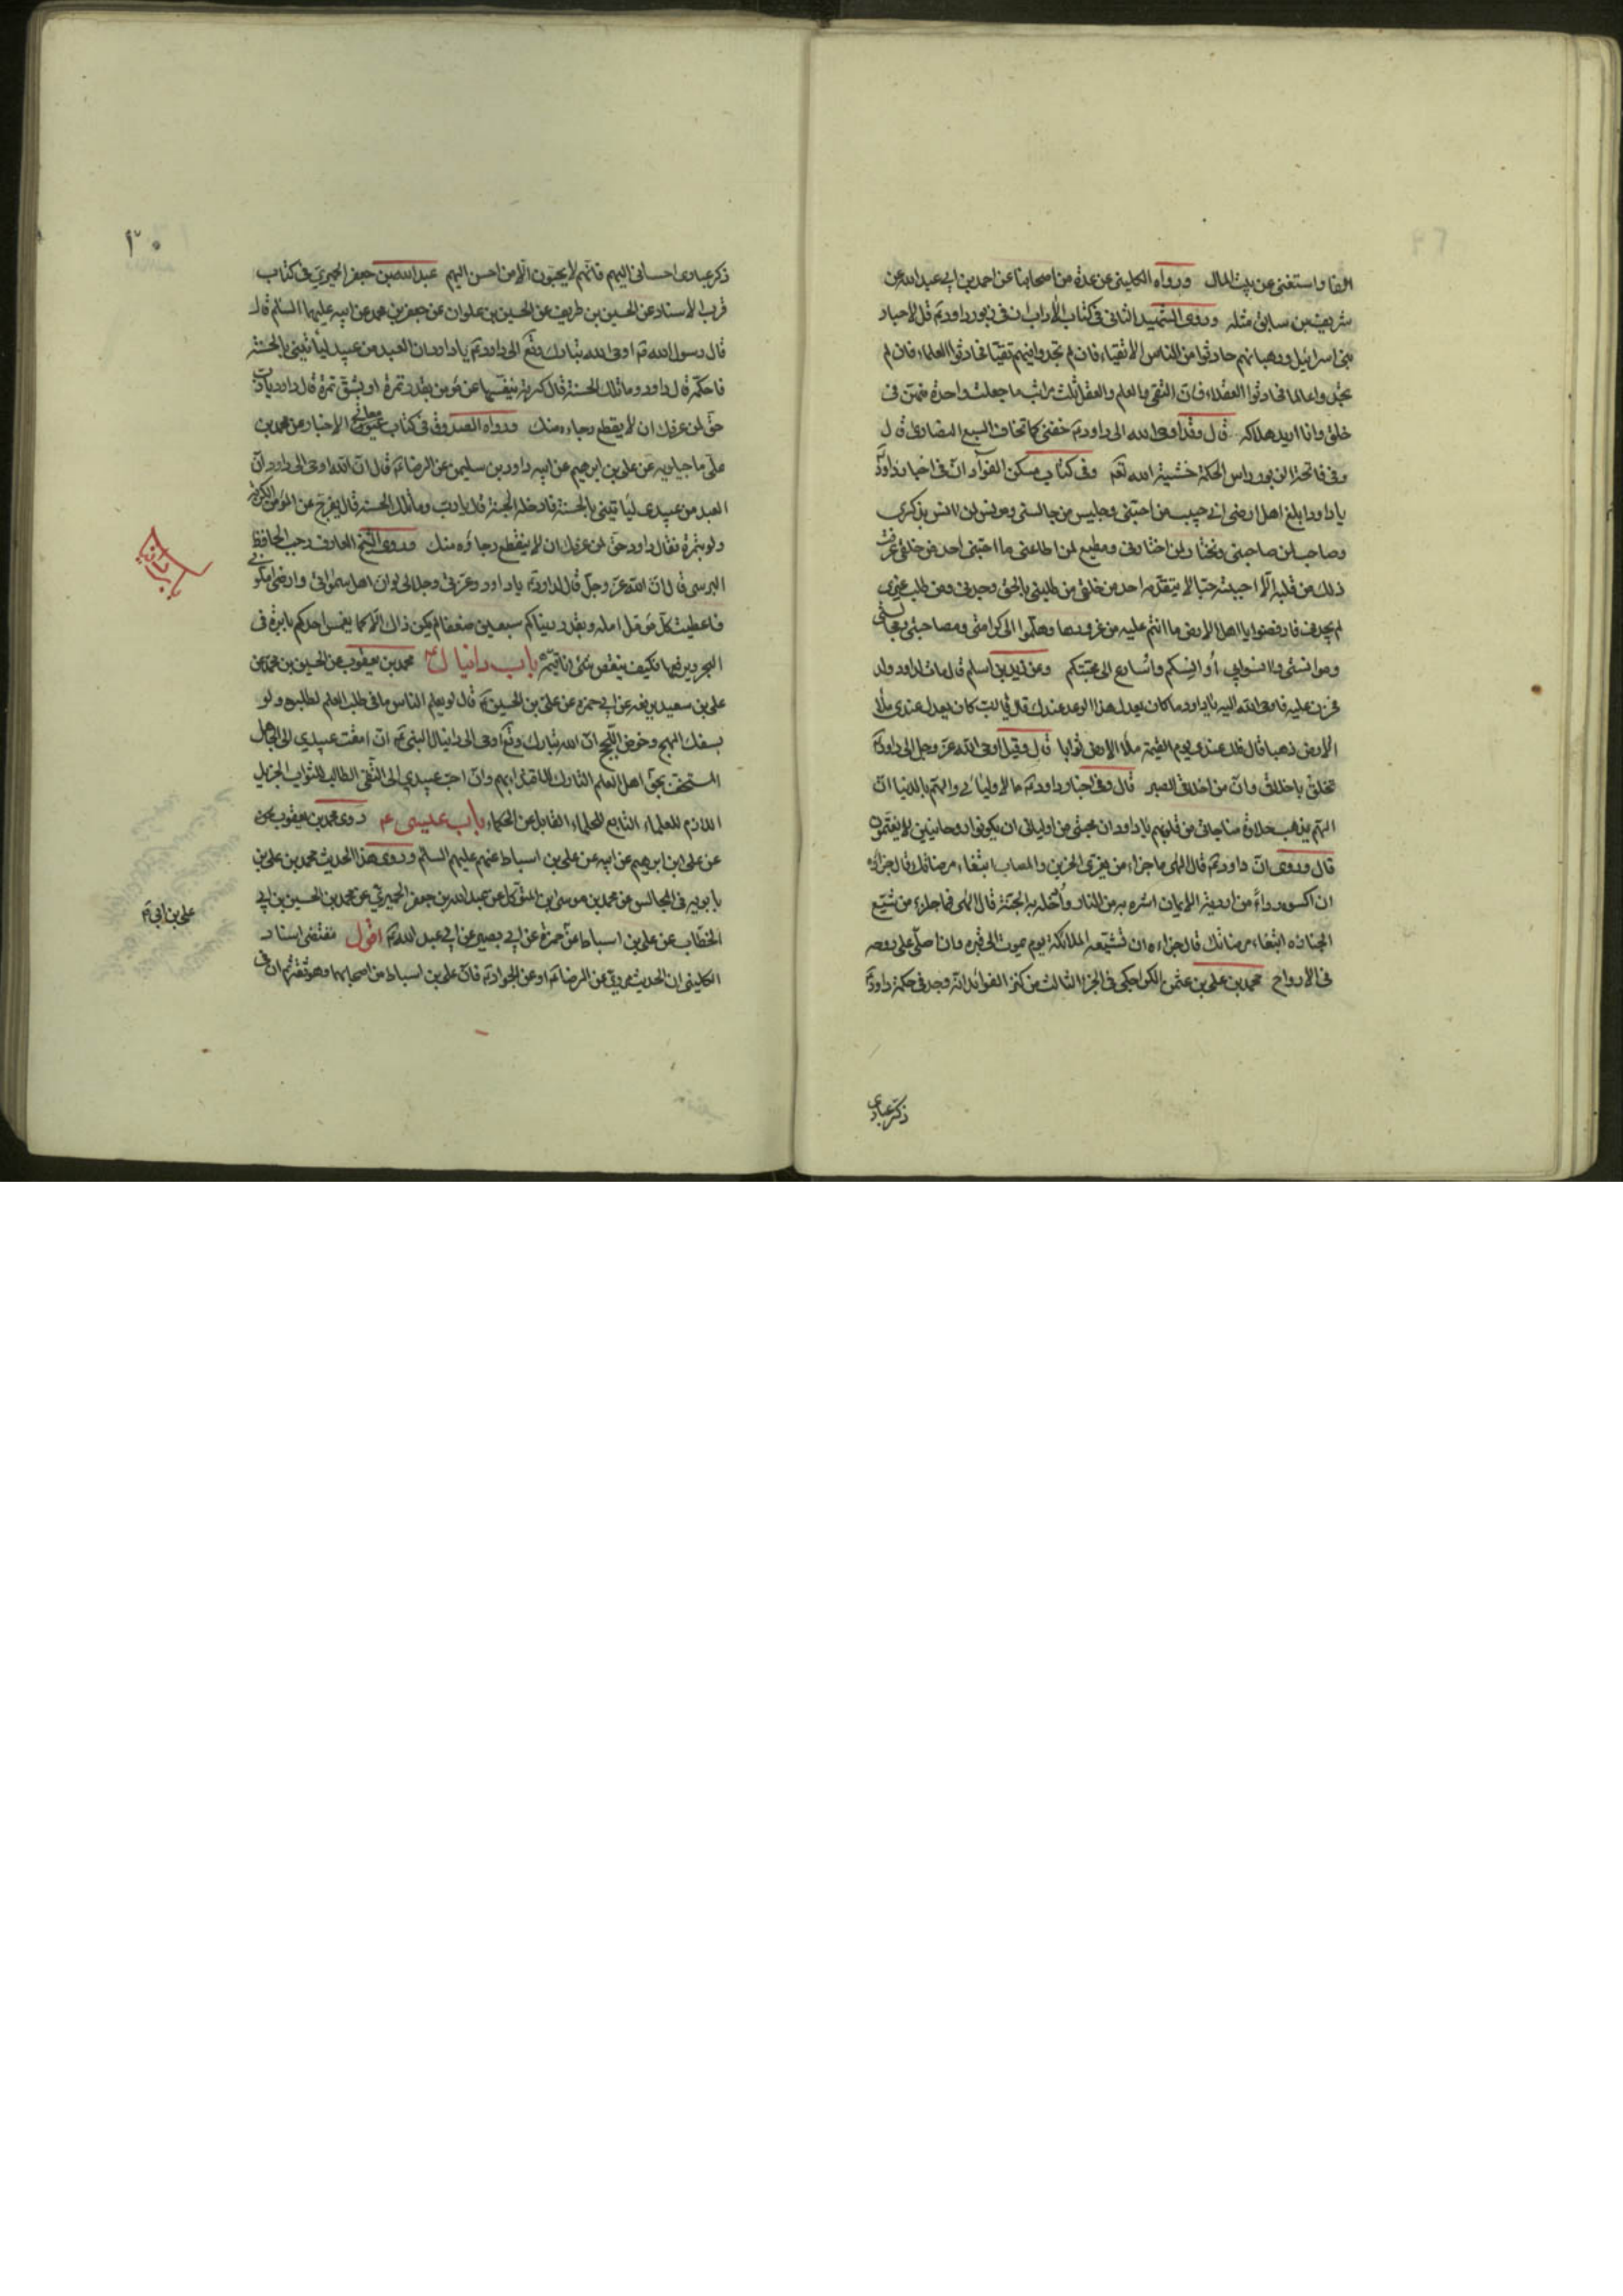 الفا واستغنى عن بيت المال ورواه الكلينى عن عدة من اصحابنا عن احمد بن ابى عبد الله عن
شريف بن سابق مثله وروى الشهيد الثانى فى كتاب الآداب ان فى زبور داود ع قل لاحبار
بنى اسرائيل ورهبانهم حادثوا من الناس الاتقياء فان لم تجدوا فيهم تقيا فحادثوا العلماء فان لم
تجدوا عالما فحادثوا العقلاء فان التقى والعلم والعقل ثلث مراتب ما جعلت واحدة منهن فى
خلقى وانا اريد هلاكه قال وقد اوحى الله الى داود ع خفنى كما تخاف السبع الضارى قال
وفى فاتحة الزبور راس الحكمة خشية الله تعم وفى كتاب مسكن الفؤاد ان فى اخبار داود ع
يا داود ابلغ اهل ارضى انى حبيب من احبنى وجليس من جالسنى ومونس لمن انس بذكرى
وصاحب لمن صاحبنى ومختار لمن اختارنى ومطيع لمن اطاعنى ما احبنى احد من خلقى عرفت
ذلك من قلبه الا احببته حبا لا يتقدمه احد من خلقى من طلبنى بالحق وجدنى ومن طلب غيرى
لم يجدنى فارفضوا يا اهل الارض ما انتم عليه من غرورها وهلموا الى كرامتى ومصاحبتى ومجالستى
وموانستى وانسوا بى أوانسكم واسارع الى محبتكم وعن زيد بن اسلم قال مات لداود ولد
فحزن عليه فاوحى الله اليه يا داود ما كان يعدل هذا الولد عندك قال يا رب كان يعدل عندى ملأ
الارض ذهبا قال فلك عندى يوم القيمة ملأ الارض ثوابا قال وقيل اوحى الله عز وجل الى داود ع
تخلق باخلاقى وان من اخلاقى الصبر قال وفى اخبار داود ع ما لاوليائى والهم بالدنيا ان
الهم يذهب حلاوة مناجاتى من قلوبهم يا داود ان محبتى من اوليائى ان يكونوا روحانيين لا يغتمون
قال وروى ان داود ع قال الهى ما جزاء من يعزى الحزين والمصاب ابتغاء مرضاتك قال جزائه
ان اكسوه رداءً من اردية الايمان استره به من النار وأدخله به الجنة قال الهى فما جزاء من شيع
الجنازه ابتغاء مرضاتك قال جزاءه ان تشيعه الملائكة يوم يموت الى قبره وان اصلى على روحه
فى الارواح محمد بن على بن عثمن الكراجكى فى الجزء الثالث من كنز الفوائد انه وجد فى حكمة داود ع
ذكر عبادى
٣٠
ذكر عبادى احسانى اليهم فانهم لا يحبون الا من احسن اليهم عبد الله بن جعفر الحميرى فى كتاب
قرب الاسناد عن الحسين بن ظريف عن الحسين بن علوان عن جعفر بن محمد عن ابيه عليهما السلم قال
قال رسول الله ص اوحى الله تبارك وتع الى داود ع يا داود ان العبد من عبيدى ليأتينى بالحسنة
فاحكمه قال داود وما تلك الحسنة قال كربة ينفسها عن مؤمن بقدر تمرة او بشق تمرة قال داود يا رب
حق لمن عرفك ان لا يقطع رجاءه منك ورواه الصدوق فى كتاب عيون الاخبار عن محمد بن
معانى
على ماجيلويه عن على بن ابرهيم عن ابيه عن داود بن سليمن عن الرضا ع قال ان الله اوحى الى داود ان
العبد من عبيدى ليأتينى بالحسنة فادخله الجنة قال يا رب وما تلك الحسنة قال يفرج عن المؤمن الكربة
ولو بتمرة فقال داود حق لمن عرفك ان لا ينقطع رجاؤه منك وروى الشيخ العارف رجب الحافظ
البرسى قال ان الله عز وجل قال لداود ع يا داود وعزتى وجلالى لو ان اهل سمواتى وارضى املونى
فاعطيت كل مؤمل امله وبقدر دنياكم سبعين ضعفا لم يكن ذلك الا كما يغمس احدكم بابرة فى
البحر ويرفعها فكيف ينقص شئ انا قيمه باب دانيال ع محمد بن يعقوب عن الحسين بن محمد عن
على بن سعيد يرفعه عن ابى حمزه عن على بن الحسين ع قال لو يعلم الناس ما فى طلب العلم لطلبوه ولو
بسفك المهج وخوض اللجج ان الله تبارك وتع اوحى الى دانيال النبى ع ان امقت عبيدى الى الجاهل
المستخف بحق اهل العلم التارك للاقتداء بهم وان احب عبيدى الى التقى الطالب للثواب الجزيل
اللازم للعلماء التابع للحلماء القابل عن الحكماء باب عيسى ع روى محمد بن يعقوب
عن على بن ابرهيم عن ابيه عن على بن اسباط عنهم عليهم السلم وروى هذا الحديث محمد بن على بن
بابويه فى المجالس عن محمد بن موسى بن المتوكل عن عبد الله بن جعفر الحميرى عن محمد بن الحسين بن ابى
الخطاب عن على بن اسباط عن حمزة عن ابى بصير عن ابى عبد الله ع اقول مقتضى اسناد
على بن ابى
الكلينى ان الحديث مروى عن الرضا ع او عن الجواد ع فان على بن اسباط من اصحابهما وهو ثقة ثم ان فى